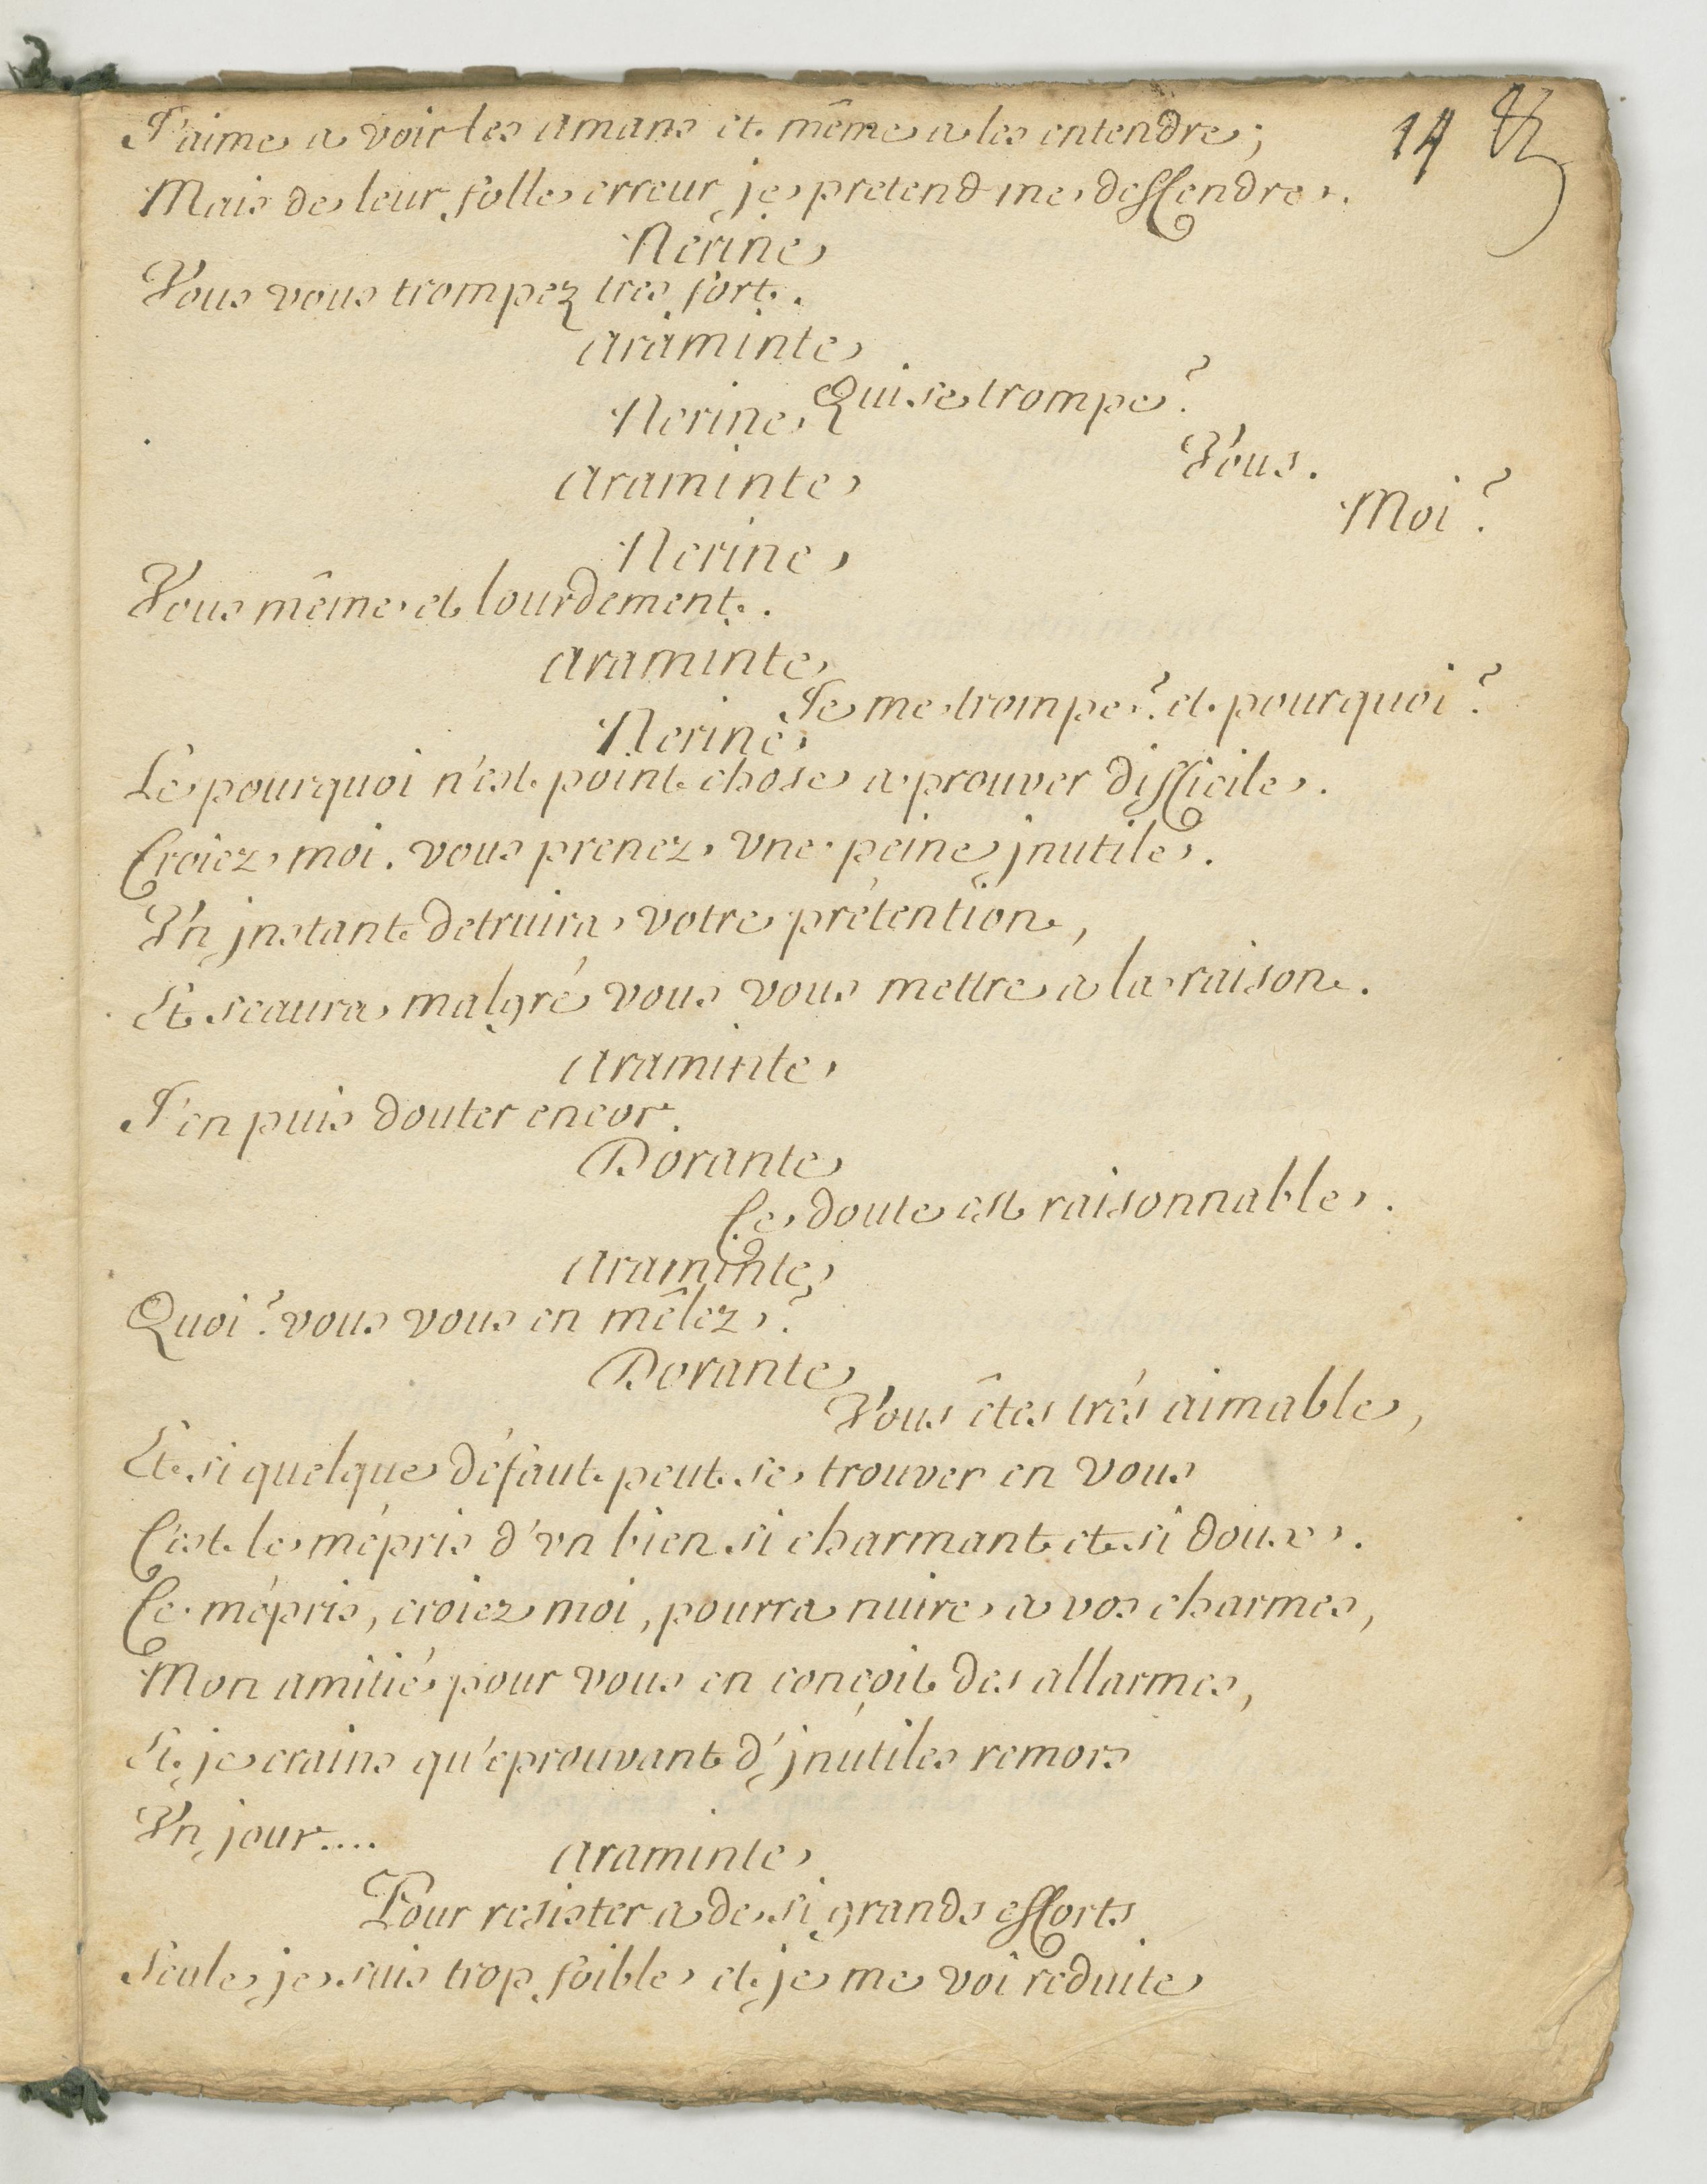 14
J'aime a voir les amans et même a les entendre;
Mais de leur folle erreur je pretend me deffendre.
Nérine
Vous vous trompez tres fort.
Araminte
Qui se trompe?
Nerine
Vous.
Araminte
Moi?
Nerine
Vous même et lourdement.
Araminte
Je me trompe? et pourquoi?
Nerine
Le pourquoi n'est point chose a prouver difficile.
Croiez moi. vous prenez une peine jnutile.
Vn jnstant detruira votre prétention,
Et scaura malgré vous vous mettre a la raison.
Araminte
J'en puis douter encor.
Dorante
Ce doute est raisonnable.
Araminte
Quoi? vous vous en mêlez?
Dorante
Vous êtes trés aimable,
Et si quelque défaut peut se trouver en vous
C'est le mépris d'vn bien si charmant et si doux.
Ce mépris, croiez moi, pourra nuire a vos charmes,
Mon amitié pour vous en conçoit des allarmes,
Et je crains qu'eprouvant d'jnutiles remors
Vn jour....
Araminte
Pour resister a de si grands efforts
Seule je suis trop foible et je me voi reduite